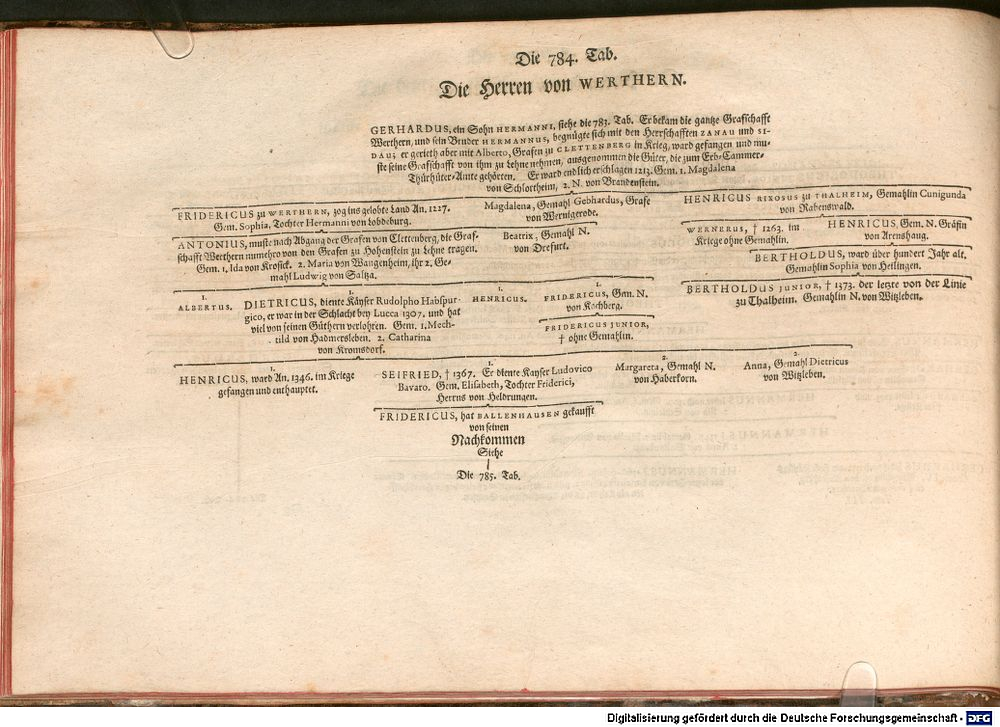 Die 784. Tab.
Die Herren von WERTHERN.
GERHARDUS, ein Sohn HERMANNI, siehe die 783. Tab. Er bekam die gantze Grafschafft
Werthern, und sein Bruder HERMANNUS, begnügte sich mit den Herrschafften ZANAU und SI-
DAU; er gerieth aber mit Alberto, Grafen zu CLETTENBERG in Krieg, ward gefangen und mu-
ste seine Grafschafft von ihm zu Lehne nehmen, ausgenommen die Güter, die zum Erb-Cammer-
Thürhüter-Amte gehörten. Er ward endlich erschlagen 1213. Gem. 1. Magdalena
von Schlortheim, 2. N. von Brandenstein.
FRIDERICUS zu WERTHERN, zog ins gelobte Land An. 1227.
Gem. Sophia, Tochter Hermanni von Lobdeburg.
Magdalena, Gemahl Gebhardus, Grafe
von Wernigerode.
HENRICUS RIXOSUS zu THALHEIM, Gemahlin Cunigunda
von Rabenswald.
ANTONIUS, muste nach Abgang der Grafen von Clettenberg, die Graf-
schafft Werthern nunmehro von den Grafen zu Hohenstein zu Lehne tragen.
Gem. 1. Ida von Krosick. 2. Maria von Wangenheim, ihr 2. Ge-
mahl Ludwig von Saltza.
Beatrix, Gemahl N.
von Drefurt.
WERNERUS, † 1263. im
Kriege ohne Gemahlin.
HENRICUS, Gem. N. Gräfin
von Arenshaug.
BERTHOLDUS, ward über hundert Jahr alt,
Gemahlin Sophia von Hetlingen.
BERTHOLDUS JUNIOR, † 1373. der letzte von der Linie
zu Thalheim. Gemahlin N. von Witzleben.
1.
ALBERTUS.
1.
DIETRICUS, diente Käyser Rudolpho Habspur-
gico, er war in der Schlacht bey Lucca 1307. und hat
viel von seinen Güthern verlohren. Gem. 1. Mech-
tild von Hadmersleben. 2. Catharina
von Kromsdorf.
1.
HENRICUS.
1.
FRIDERICUS, Gem. N.
von Kochberg.
FRIDERICUS JUNIOR,
† ohne Gemahlin.
1.
HENRICUS, ward An. 1346. im Kriege
gefangen und enthauptet.
1.
SEIFRIED, † 1367. Er diente Kayser Ludovico
Bavaro. Gem. Elisabeth, Tochter Friderici,
Herrns von Heldrungen.
2.
Margareta, Gemahl N.
von Haberkorn.
2.
Anna, Gemahl Dietricus
von Witzleben.
FRIDERICUS, hat BALLENHAUSEN gekaufft
von seinen
Nachkommen
Siehe
Die 785. Tab.
Digitalisierung gefördert durch die Deutsche Forschungsgemeinschaft - DFG